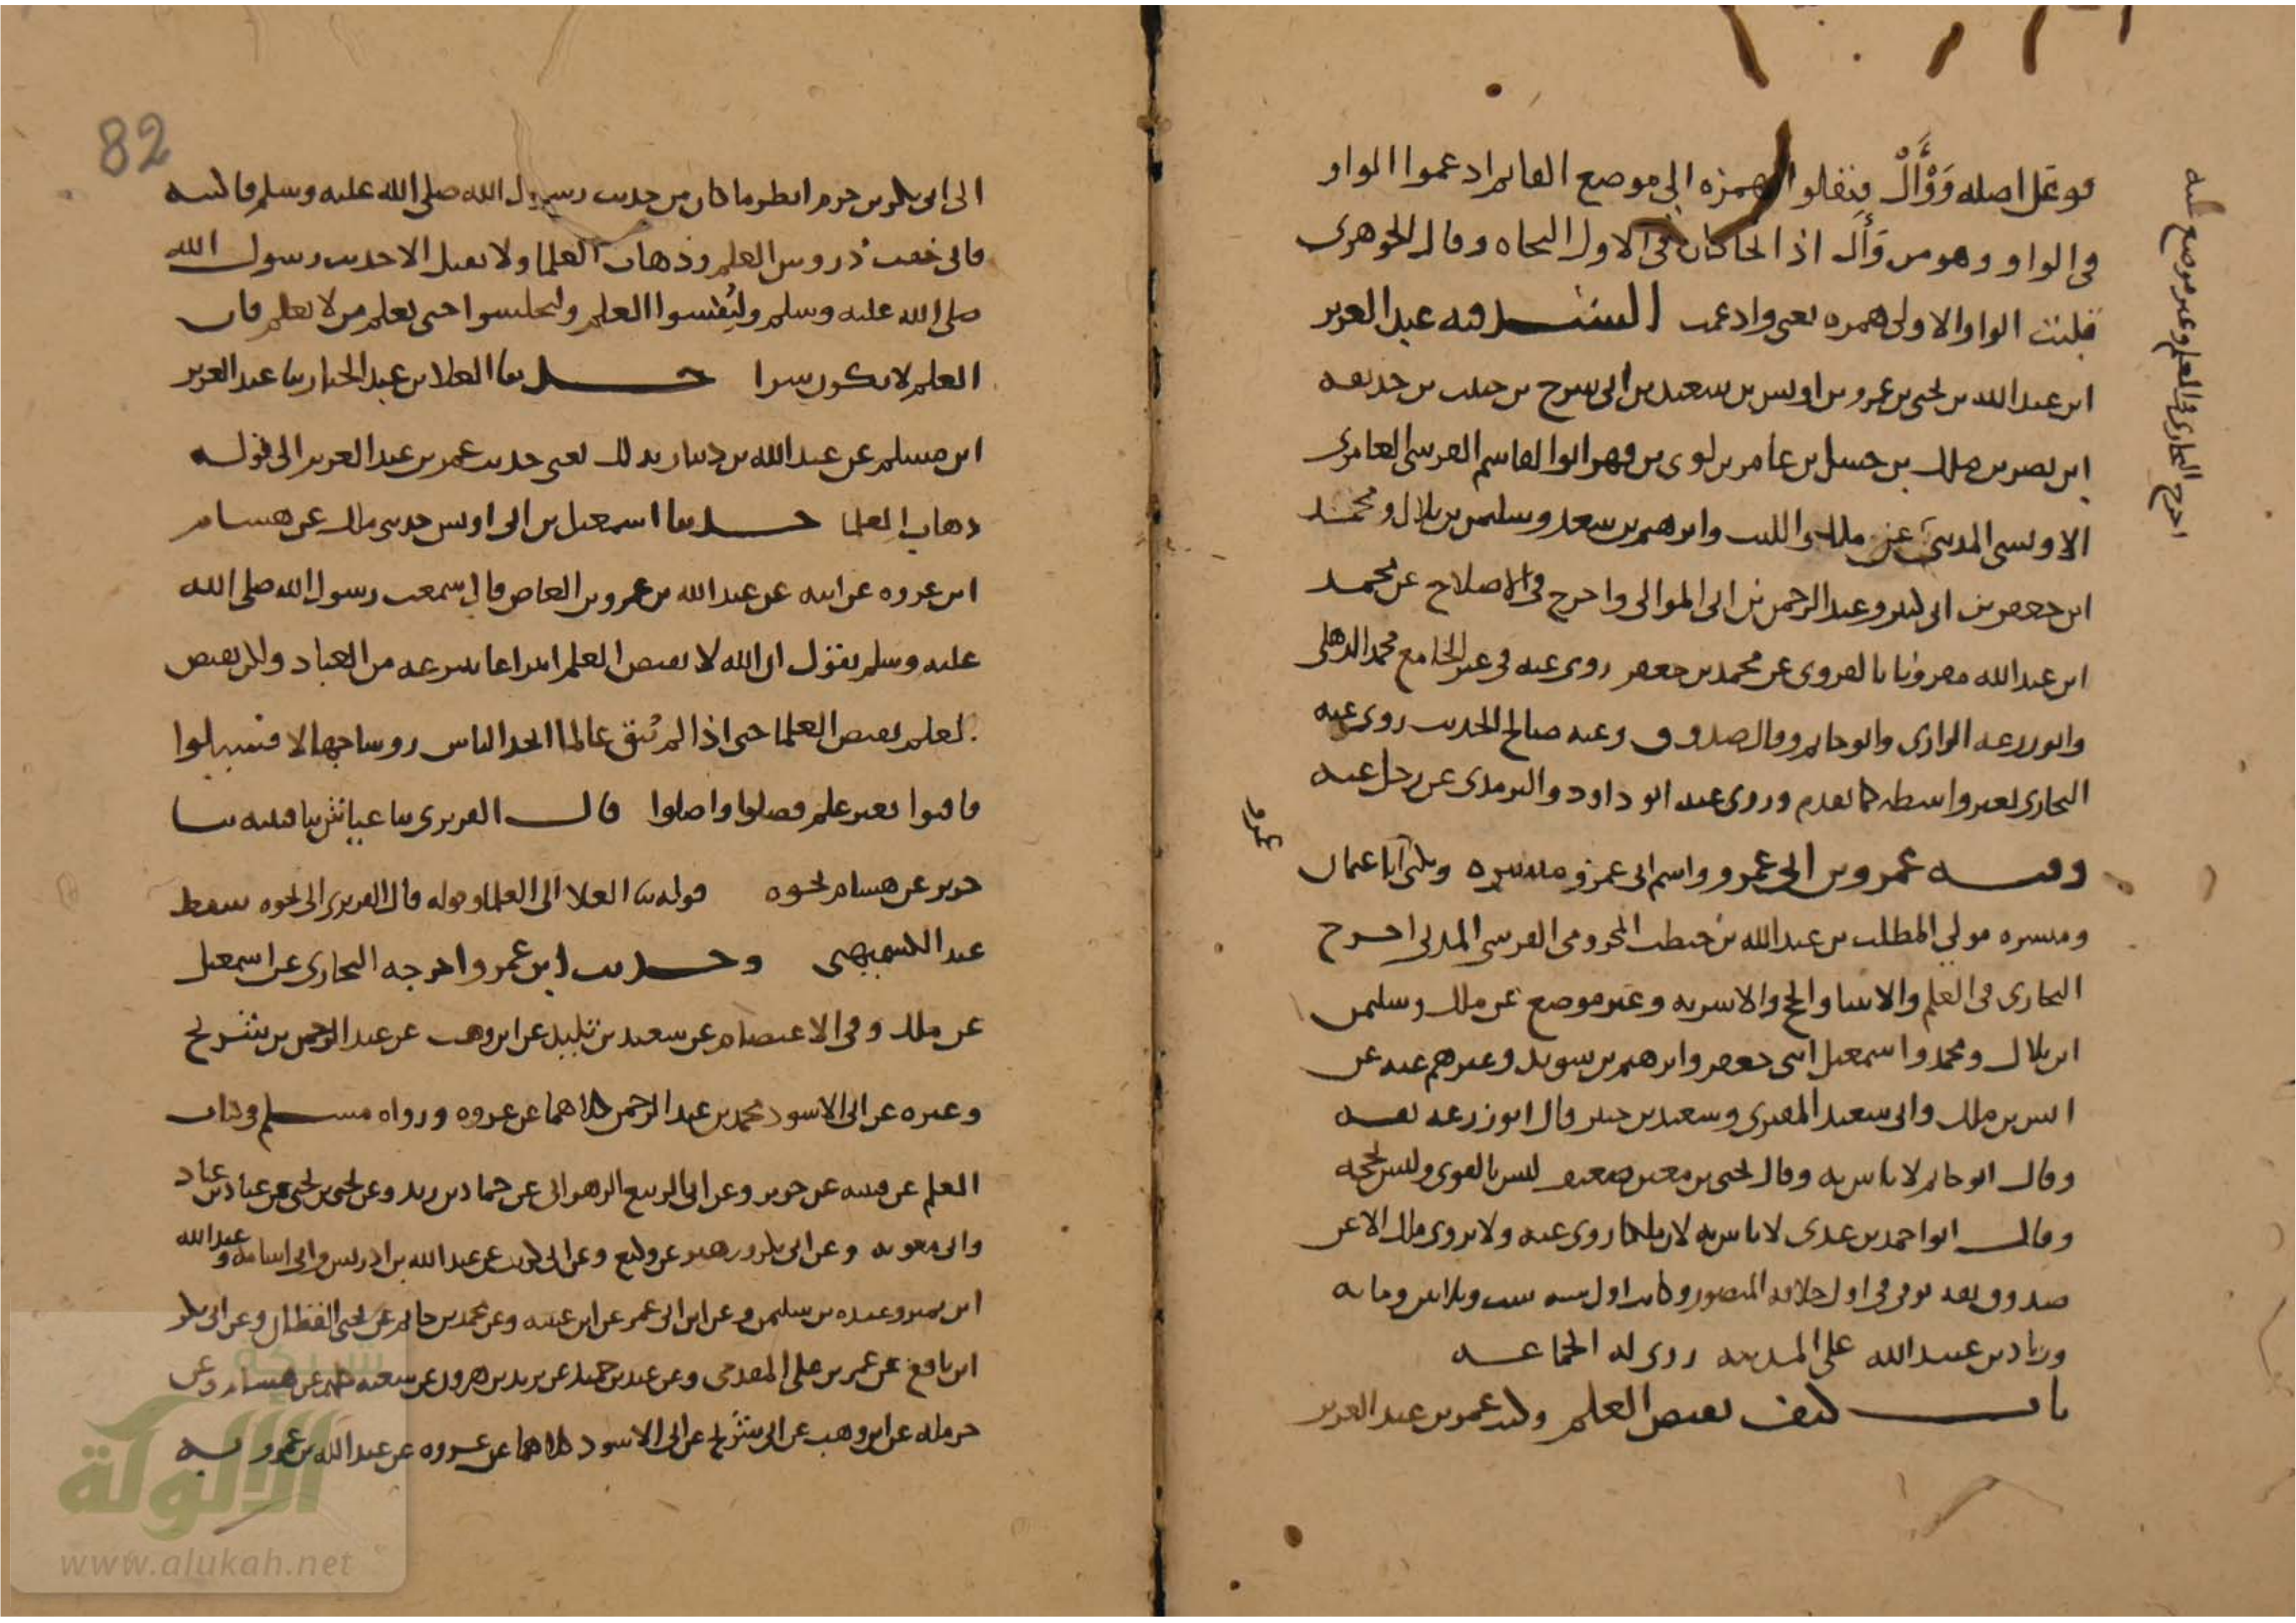 فوعل اصله وَوْأَلْ فنقلوا الهمزه الى موضع الفا ثم ادغموا الواو
في الواو وهو من وَأَل اذا لجا كان في الاول النجاه وقال الجوهرى
قلبت الواو الاولى همزه يعنى وادغمت السند فيه عبد العزيز
ابن عبد الله بن يحيى بن عمرو بن اويس بن سعيد بن ابى سرح بن حبيب بن جذيمه
ابن نصر بن ملك بن حسل بن عامر بن لوى بن فهر ابوا القاسم القرشى العامرى
الاويسى المدينى عن ملك والليث وابرهيم بن سعد وسليمن بن بلال ومحمد
ابن جعفر بن ابى كثير وعبد الرحمن بن ابى الموالى واخرج في الاصلاح عن محمد
ابن عبد الله مقرونا بالفروى عن محمد بن جعفر روى عنه في غير الجامع محمد الذهلى
وابو زرعه الرازى وابو حاتم وقال صدوق وعنه صالح الحديث روى عنه
البخارى بغير واسطه كما تقدم وروى عنه ابو داود والترمذى عن رجل عنه
وفيه عمرو بن ابى عمرو واسم ابى عمرو ميسره ويكنى ابا عثمان
وميسره مولى المطلب بن عبد الله بن حنطب المخزومى القرشى المدنى اخرج
البخارى في العلم والانبيا والحج والاشربه وغير موضع عن ملك وسليمن
ابن بلال ومحمد واسمعيل ابنى جعفر وابرهيم بن سويد وغيرهم عنه عن
انس بن ملك وابى سعيد المقبرى وسعيد بن جبير قال ابو زرعه ثقه
وقال ابو حاتم لا باس به وقال يحيى بن معين ضعيف ليس بالقوى وليس بحجه
وقال ابو احمد بن عدى لا باس به لان ملكا روى عنه ولا يروى ملك الا عن
صدوق ثقه توفى في اول خلافه المنصور وكانت اول سنه ست وثلاثين ومايه
وزياد بن عبيد الله على المدينه روى له الجماعه
باب كيف يقبض العلم وكتب عمر بن عبد العزيز
اخرج البخارى في العلم وغير موضع عنه
عمرو
82
الى ابى بكر بن حزم انظر ما كان من حديث رسول الله صلى الله عليه وسلم فاكتبه
فانى خفت دروس العلم وذهاب العلما ولا تقبل الا حديث رسول الله
صلى الله عليه وسلم وليُفشوا العلم وليجلسوا حتى يعلم من لا يعلم فان
العلم لا يكون سرا حدثنا العلا بن عبد الجبار ثنا عبد العزيز
ابن مسلم عن عبد الله بن دينار بذلك يعنى حديث عمر بن عبد العزيز الى قوله
ذهاب العلما حدثنا اسمعيل بن ابى اويس حدثنى ملك عن هشام
ابن عروه عن ابيه عن عبد الله بن عمرو بن العاص قال سمعت رسول الله صلى الله
عليه وسلم يقول ان الله لا يقبض العلم انتزاعا ينتزعه من العباد ولكن يقبض
العلم بقبض العلما حتى اذا لم يُبق عالما اتخذ الناس روسا جهالا فسيلوا
فافتوا بغير علم فضلوا واضلوا قال الفربرى ثنا عباس ثنا قتيبه ثنا
جرير عن هشام نحوه قوله ثنا العلا الى العلما وقوله قال الفربرى الى نحوه سقط
عند الكشميهنى وحديث ابن عمرو اخرجه البخارى عن اسمعيل
عن ملك وفي الاعتصام عن سعيد بن تليد عن ابن وهب عن عبد الرحمن بن شريح
وغيره عن ابى الاسود محمد بن عبد الرحمن كلاهما عن عروه ورواه مسلم في كتاب
العلم عن قتيبه عن جرير وعن ابى الربيع الزهرانى عن حماد بن زيد وعن يحيى بن يحيى عن عباد بن عباد
وابى معويه وعن ابى بكر وزهير عن وكيع وعن ابى كريب عن عبد الله بن ادريس وابى اسامه وعبد الله
ابن نمير وعبده بن سليمن وعن ابن ابى عمر عن ابن عيينه وعن محمد بن حاتم عن يحيى القطان وعن ابى بكر
ابن نافع عن عمر بن على المقدمى وعن عبد بن حميد عن يزيد بن هرون عن شعبه كلهم عن هشام وعن
حرمله عن ابن وهب عن ابن شريح عن ابى الاسود كلاهما عن عروه عن عبد الله بن عمرو به
شبكة
الألوكة
www.alukah.net